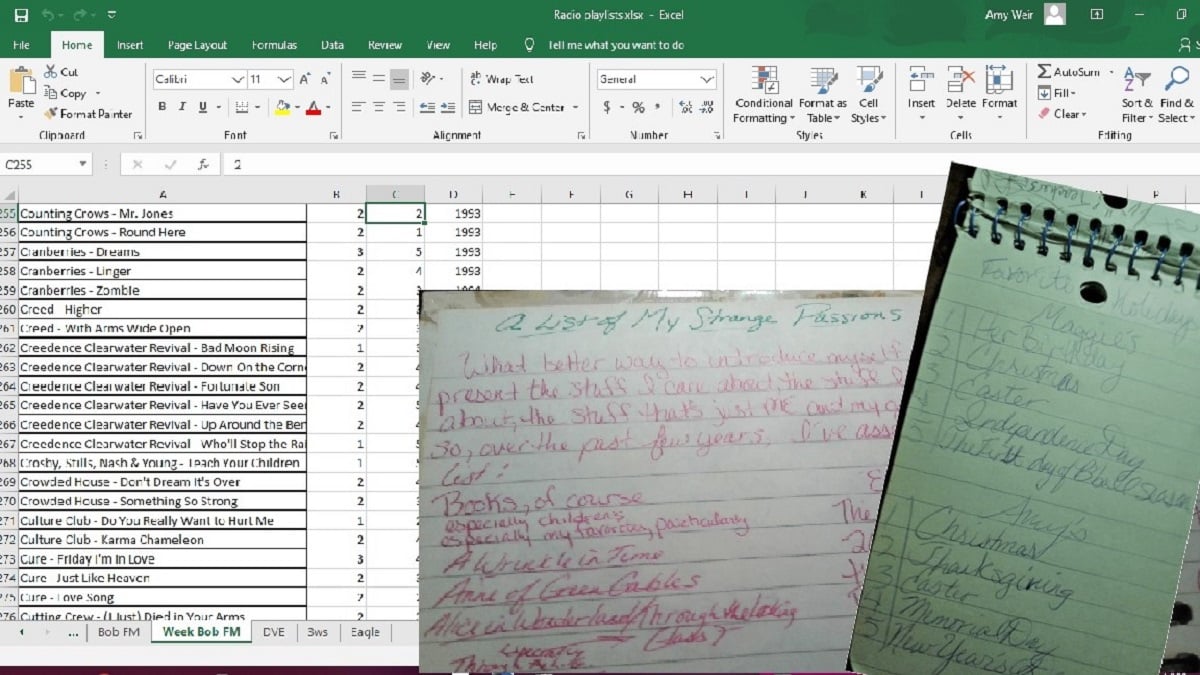 Radio playlists.xlsx - Excel
Amy Weir
File Home Insert Page Layout Formulas Data Review View Help Tell me what you want to do
Paste
Cut
Copy
Format Painter
Clipboard
Calibri 11
B I U
Font
Wrap Text
Merge & Center
Alignment
General
$ % ,
Number
Conditional Formatting
Format as Table
Cell Styles
Styles
Insert Delete Format
Cells
AutoSum
Fill
Clear
Sort & Filter
Find & Select
Editing
C255 fx 2
A B C D E F G H I J K
255 Counting Crows - Mr. Jones 2 2 1993
256 Counting Crows - Round Here 2 1 1993
257 Cranberries - Dreams 3 5 1993
258 Cranberries - Linger 2 4 1993
259 Cranberries - Zombie 2
260 Creed - Higher 2
261 Creed - With Arms Wide Open 2
262 Creedence Clearwater Revival - Bad Moon Rising 1
263 Creedence Clearwater Revival - Down On the Corn 2
264 Creedence Clearwater Revival - Fortunate Son 2
265 Creedence Clearwater Revival - Have You Ever Seen 2
266 Creedence Clearwater Revival - Up Around the Ben 2
267 Creedence Clearwater Revival - Who'll Stop the Rai 1
268 Crosby, Stills, Nash & Young - Teach Your Children 1
269 Crowded House - Don't Dream It's Over 2
270 Crowded House - Something So Strong 2
271 Culture Club - Do You Really Want to Hurt Me 1
272 Culture Club - Karma Chameleon 2
273 Cure - Friday I'm in Love 3
274 Cure - Just Like Heaven 2
275 Cure - Love Song 2
276 Cutting Crew - (I Just) Died in Your Arms 2
... Bob FM Week Bob FM DVE 3ws Eagle
A List of My Strange Passions
What better way to introduce myself
present the stuff I care about the stuff I
about, the stuff that's just ME and my
So, over the past few years, I've ass
list:
Books, of course
especially children's
especially my favorites, particularly
A Wrinkle in Time
Anne of Green Gables
Alice in Wonderland/Through the Looking
Glass
The
Favorite Holiday
Maggie's
1 Her Birthday
2 Christmas
3 Easter
4 Independence Day
5 The first day of Bball season
Amy's
1 Christmas
2 Thanksgiving
3 Easter
4 Memorial Day
5 New Years